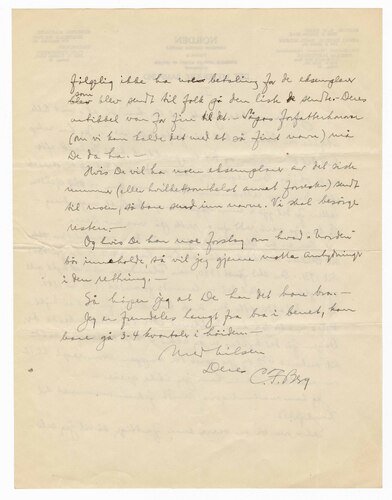 følgelig ikke ha noe betaling for de eksemplarer
som
blev sendt til folk på den liste De sendte. Deres
artikkel var for fin til det. - Såpas forfatterhonorar
(om vi kan kalde det med et så fint navn) må
De da ha. -
Hvis De vil ha noen eksemplarer av det siste
nummer (eller hvilketsomhelst annet foresten) sendt
til noen, så bare send inn navne. Vi skal besørge
resten. -
Og hvis De har noe forslag om hvad "Norden"
bör inneholde, så vil jeg gjerne motta antydninger
i den retning. -
Så håper jeg at De har det bare bra. -
Jeg er fremdeles langt fra bra i benet, kan
bare gå 3-4 kvartaler i höiden. -
Med hilsen
Deres C. F. Berg
NORDEN